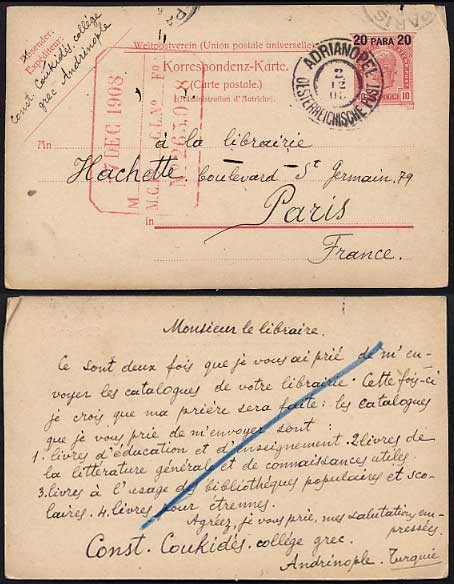 Absender:
Expéditeur:
Const. Coukidès. collège
grec Andrinople
PARIS
20 PARA 20
Weltpostverein (Union postale universelle)
Korrespondenz-Karte.
(Carte postale.)
(Administration d'Autriche.)
ADRIANOPEL
2
12
08
OESTERREICHISCHE POST
10
7 DEC 1908
M
M.C.
CL. No
Fo
An
à la librairie
Hachette. boulevard St Germain, 79
in
Paris
France.
Monsieur le libraire.
Ce sont deux fois que je vous ai prié de m'en-
voyer les catalogues de votre librairie. Cette fois-ci
je crois que ma prière sera faite: les catalogues
que je vous prie de m'envoyer sont:
1. livres d'éducation et d'enseignement. 2. livres de
la littérature générale et de connaissances utiles.
3. livres à l'usage des bibliothèques populaires et sco-
laires. 4. livres pour étrennes.
Agréez, je vous prie, mes salutation em-
pressées.
Const. Coukidès. collége grec.
Andrinople. Turquie